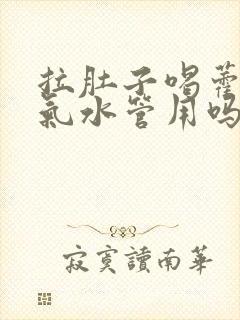 拉肚子喝藿
氣水管用吗
寂寞讀南華